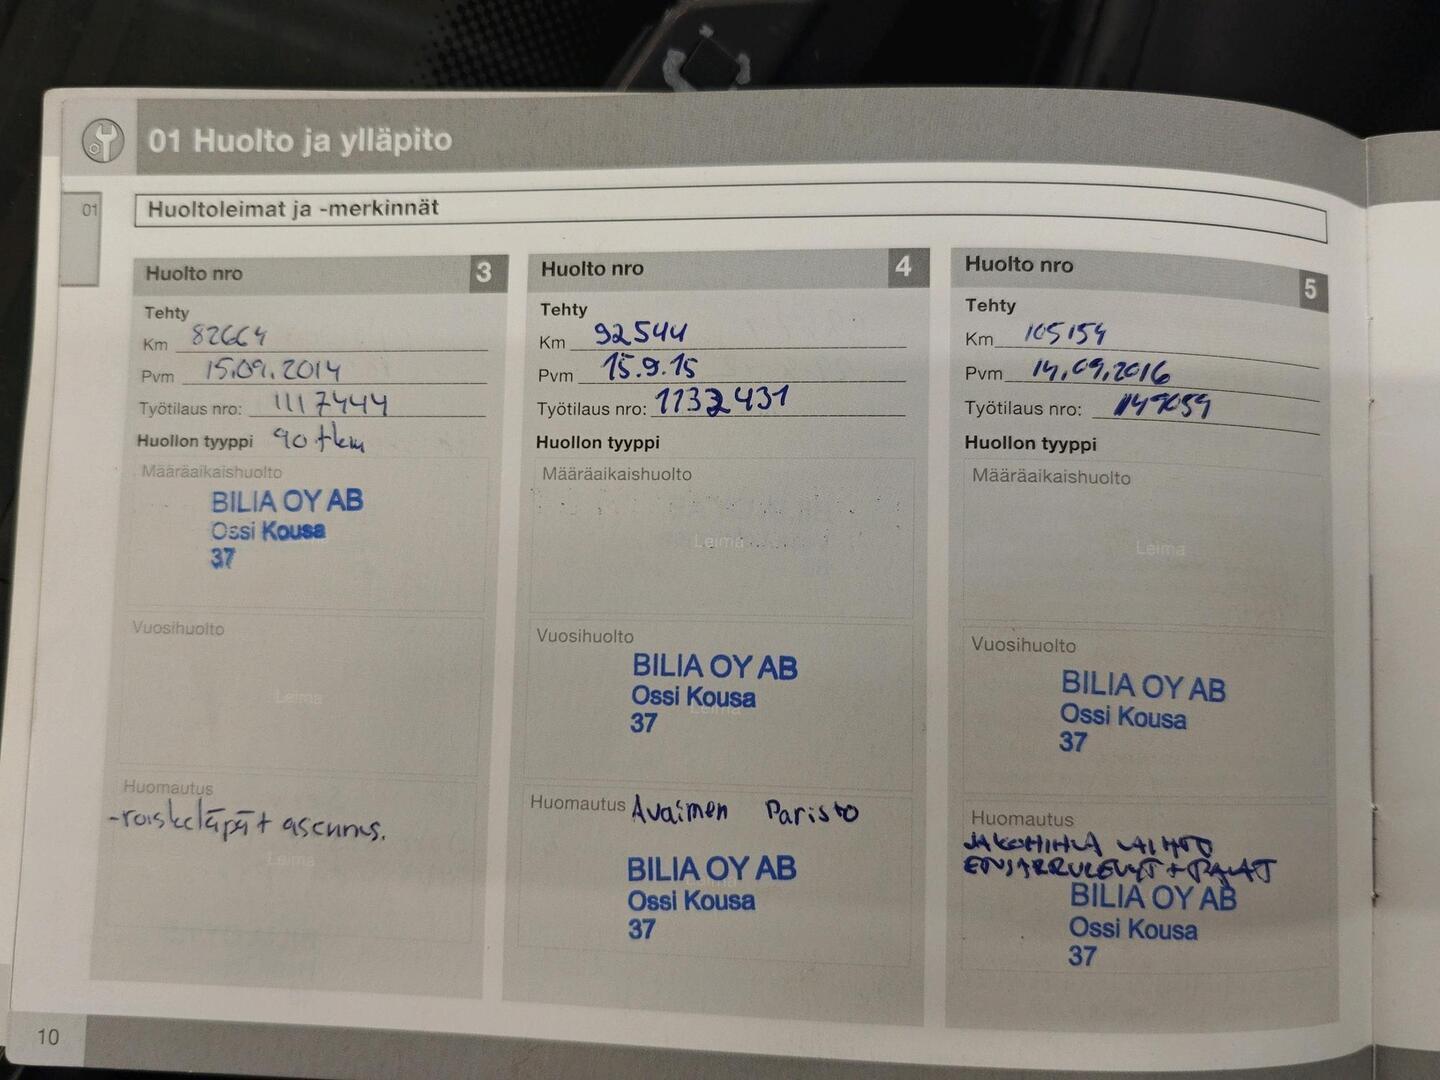 01 Huolto ja ylläpito
01
Huoltoleimat ja -merkinnät
Huolto nro 3
Tehty
Km 82664
Pvm 15.09.2014
Työtilaus nro: 1117444
Huollon tyyppi 90 tkm
Määräaikaishuolto
BILIA OY AB
Ossi Kousa
37
Vuosihuolto
Leima
Huomautus
-roiskeläpät asennus.
Leima
Huolto nro 4
Tehty
Km 92544
Pvm 15.9.15
Työtilaus nro: 1132431
Huollon tyyppi
Määräaikaishuolto
Leima
Vuosihuolto
BILIA OY AB
Ossi Kousa
Leima
37
Huomautus Avaimen Paristo
BILIA OY AB
Leima
Ossi Kousa
37
Huolto nro 5
Tehty
Km 105154
Pvm 14.09.2016
Työtilaus nro:
Huollon tyyppi
Määräaikaishuolto
Leima
Vuosihuolto
BILIA OY AB
Ossi Kousa
37
Huomautus
JAKOHIHNA VAIHTO
ETUJARRULEVYT + PALAT
BILIA OY AB
Ossi Kousa
37
10